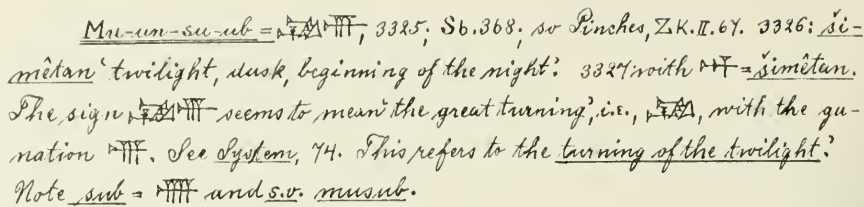 Mu-un-su-ub = , 3325; Sb. 368; so Pinches, Z.K. II. 67. 3326: ši-
mêtan 'twilight, dusk, beginning of the night'. 3327 with = šimêtan.
The sign seems to mean 'the great turning', i.e., , with the gu-
nation . See System, 74. This refers to the turning of the twilight?
Note sub = and s.v. musub.